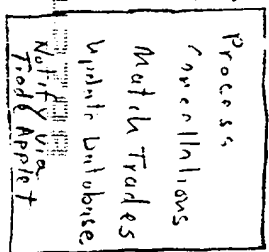 Process
Cancellations
Match Trades
Update Database
Notify via
Trade Applet